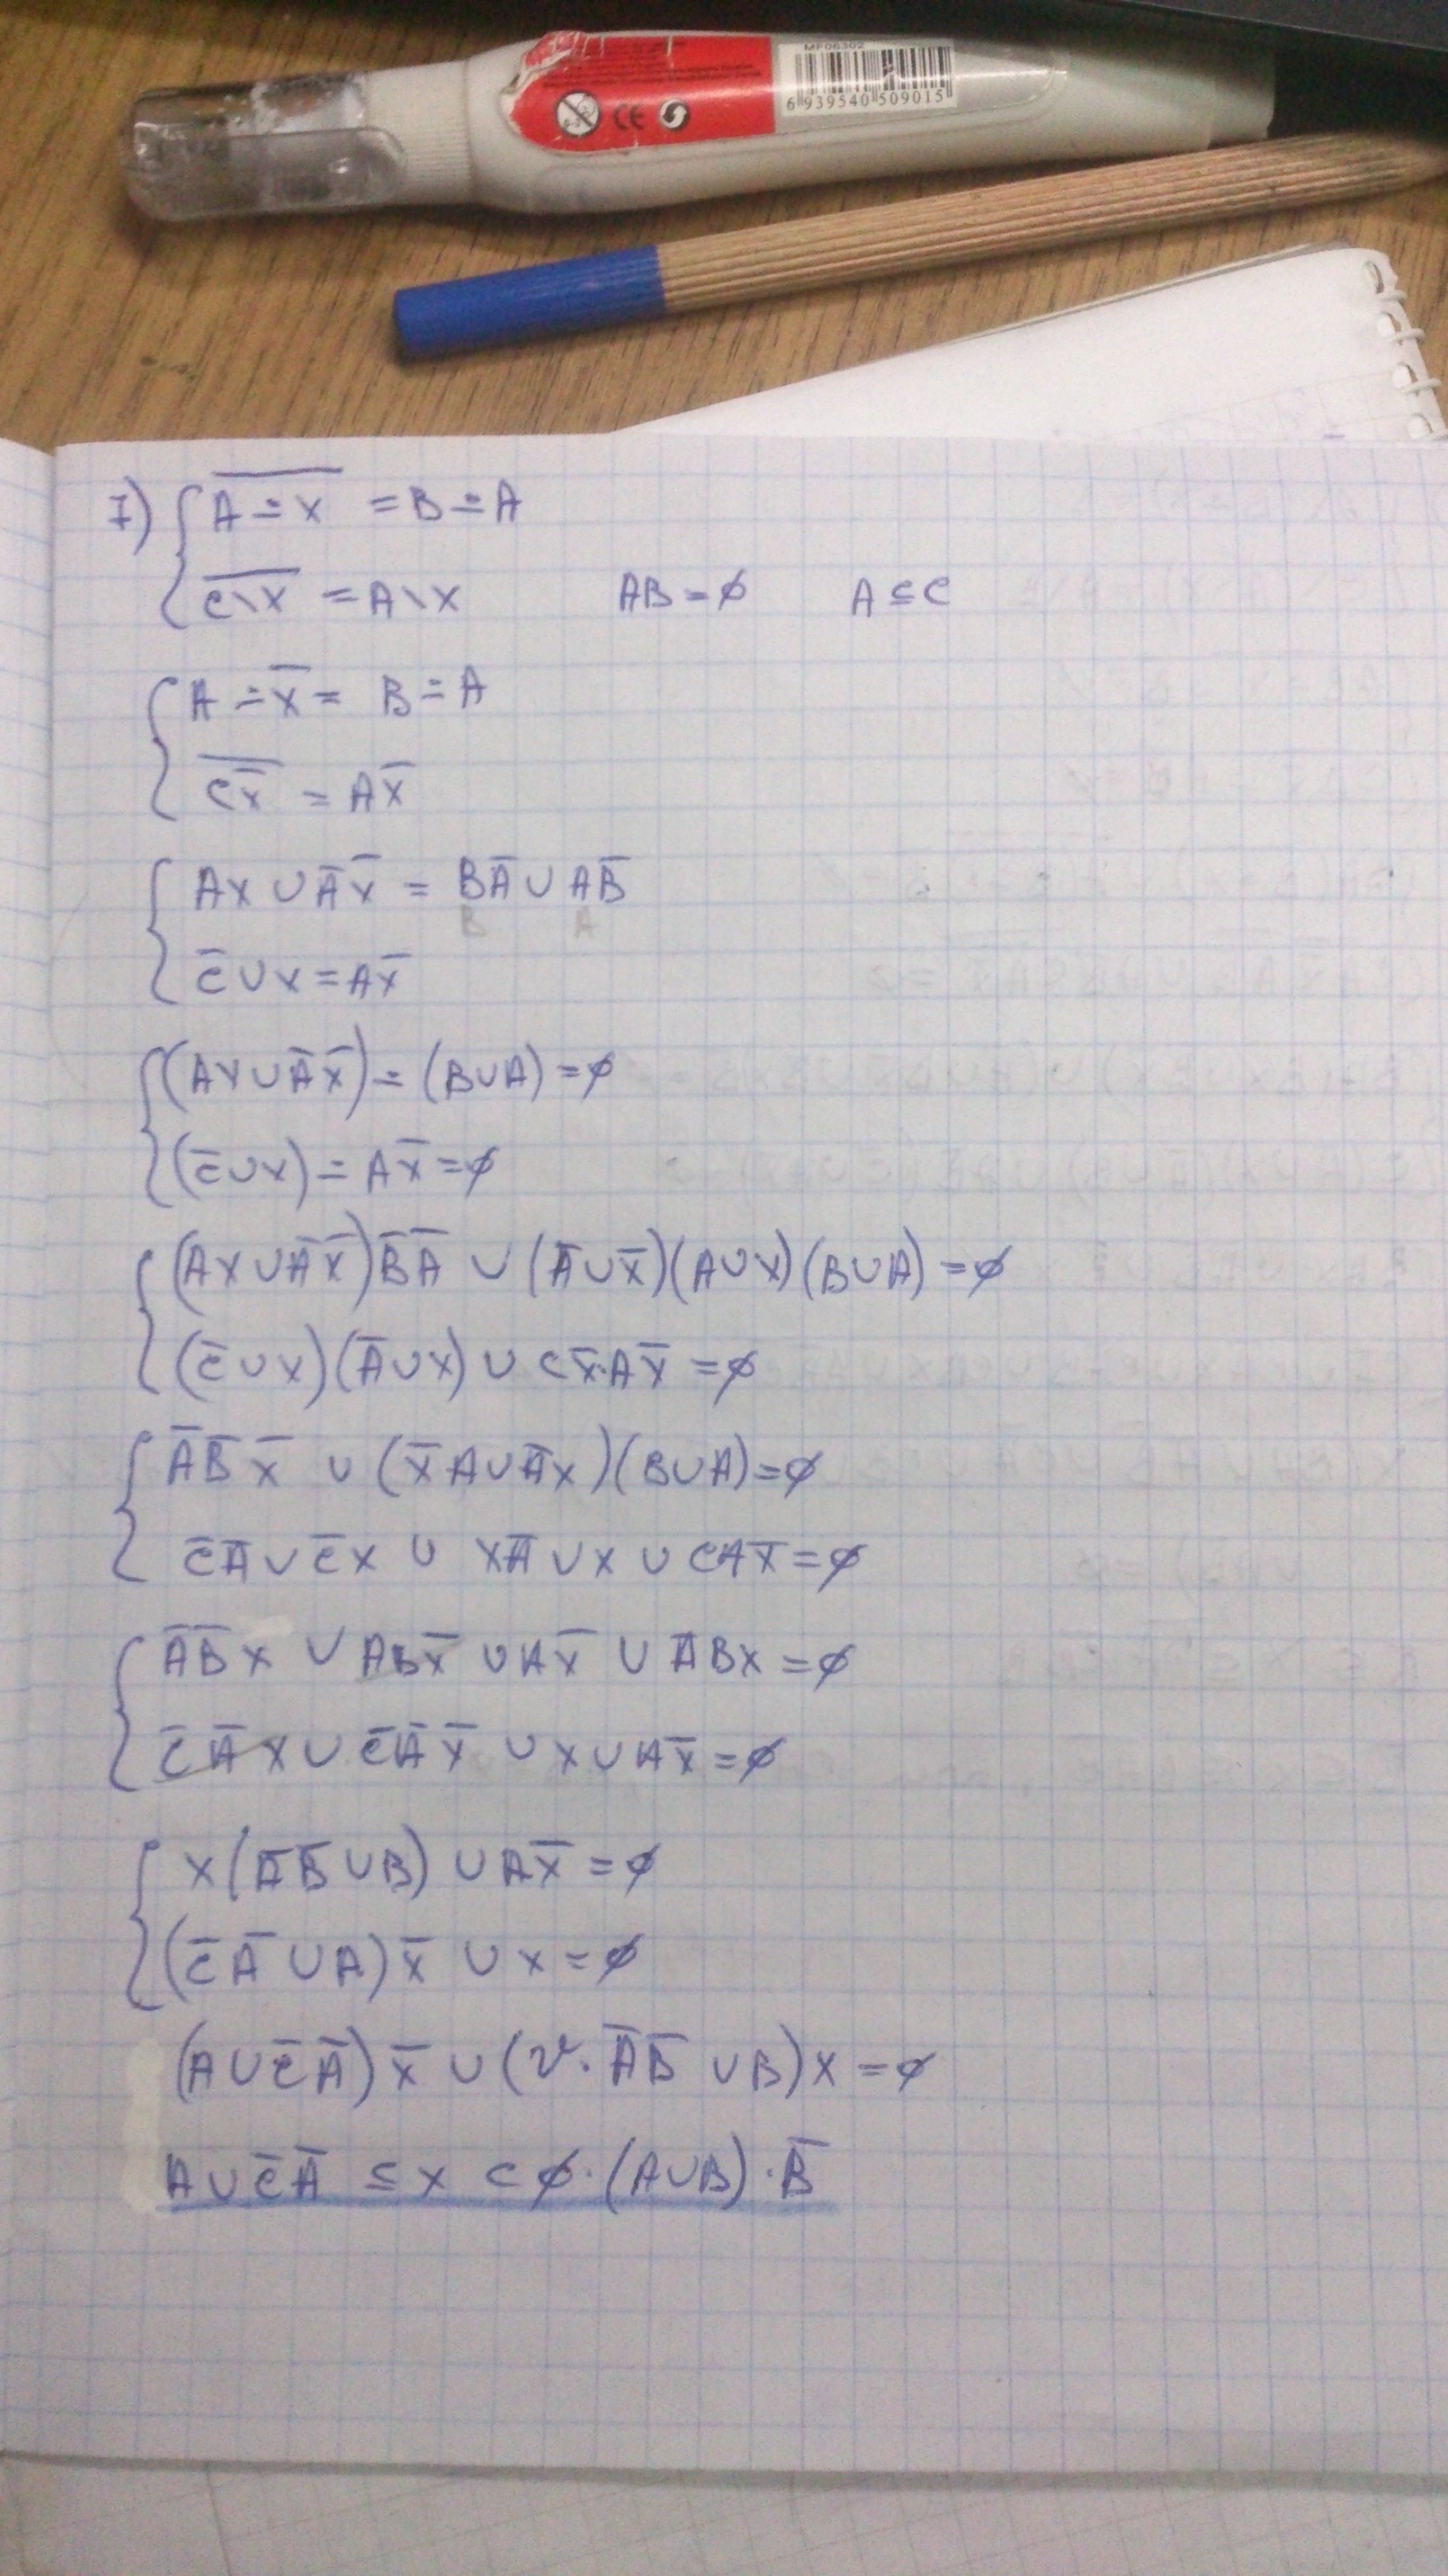 MF06302
6 939540 509015
CE
I) { \overline{A ∸ X} = B ∸ A
\overline{C\X} = A\X   AB = ∅   A ⊆ C
{ A ∸ \overline{X} = B ∸ A
\overline{C\overline{X}} = A\overline{X}
{ AX ∪ \overline{A}\overline{X} = B\overline{A} ∪ A\overline{B}
B A
\overline{C} ∪ X = A\overline{X}
{ (AX ∪ \overline{A}\overline{X}) ∸ (B∪A) = ∅
(\overline{C} ∪ X) ∸ A\overline{X} = ∅
{ (AX ∪ \overline{A}\overline{X})\overline{B}\overline{A} ∪ (\overline{A} ∪ \overline{X})(A∪X)(B∪A) = ∅
(\overline{C} ∪ X)(\overline{A} ∪ X) ∪ C\overline{X}·A\overline{X} = ∅
{ \overline{A}\overline{B}\overline{X} ∪ (\overline{X}A ∪ \overline{A}X)(B∪A) = ∅
\overline{C}\overline{A} ∪ \overline{C}X ∪ X\overline{A} ∪ X ∪ CA\overline{X} = ∅
{ \overline{A}\overline{B}X ∪ AB\overline{X} ∪ A\overline{X} ∪ \overline{A}BX = ∅
\overline{C}\overline{A}X ∪ \overline{C}\overline{A}\overline{X} ∪ X ∪ A\overline{X} = ∅
{ X(\overline{A}\overline{B} ∪ B) ∪ A\overline{X} = ∅
(\overline{C}\overline{A} ∪ A)\overline{X} ∪ X = ∅
(A ∪ \overline{C}\overline{A})\overline{X} ∪ (U·\overline{A}\overline{B} ∪ B)X = ∅
A ∪ \overline{C}\overline{A} ⊆ X ⊂ ∅·(A∪B)·\overline{B}